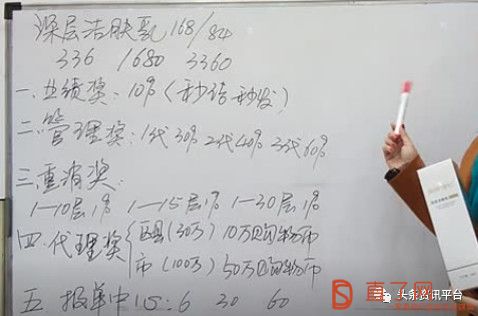 深层洁肤乳 168/84
336 1680 3360
一.业绩奖:10%(秒结秒发)
二.管理奖:1代30% 2代40% 3代60%
三.重消奖:
1—10层1% 1—15层1% 1—30层1%
四.代理奖 区县(30万) 10万
市(100万) 50万
五 报单中心:6 30 60
直了网
头条资讯平台